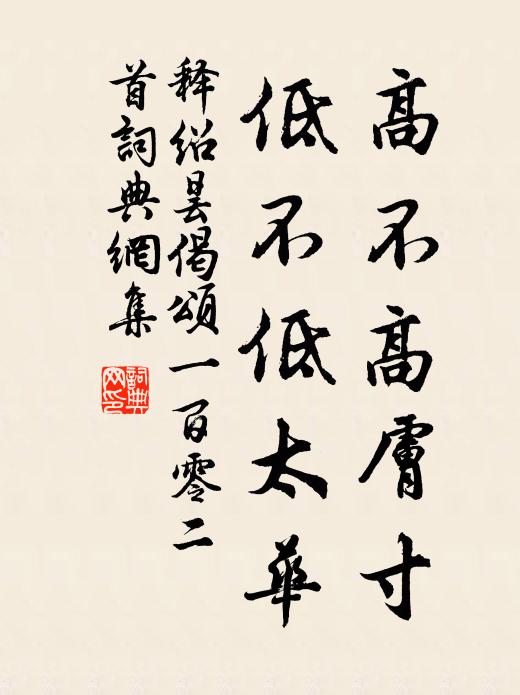 高不高膚寸
低不低太華
释绍昙偈頌一百零二
首詞典網集
詞典網印